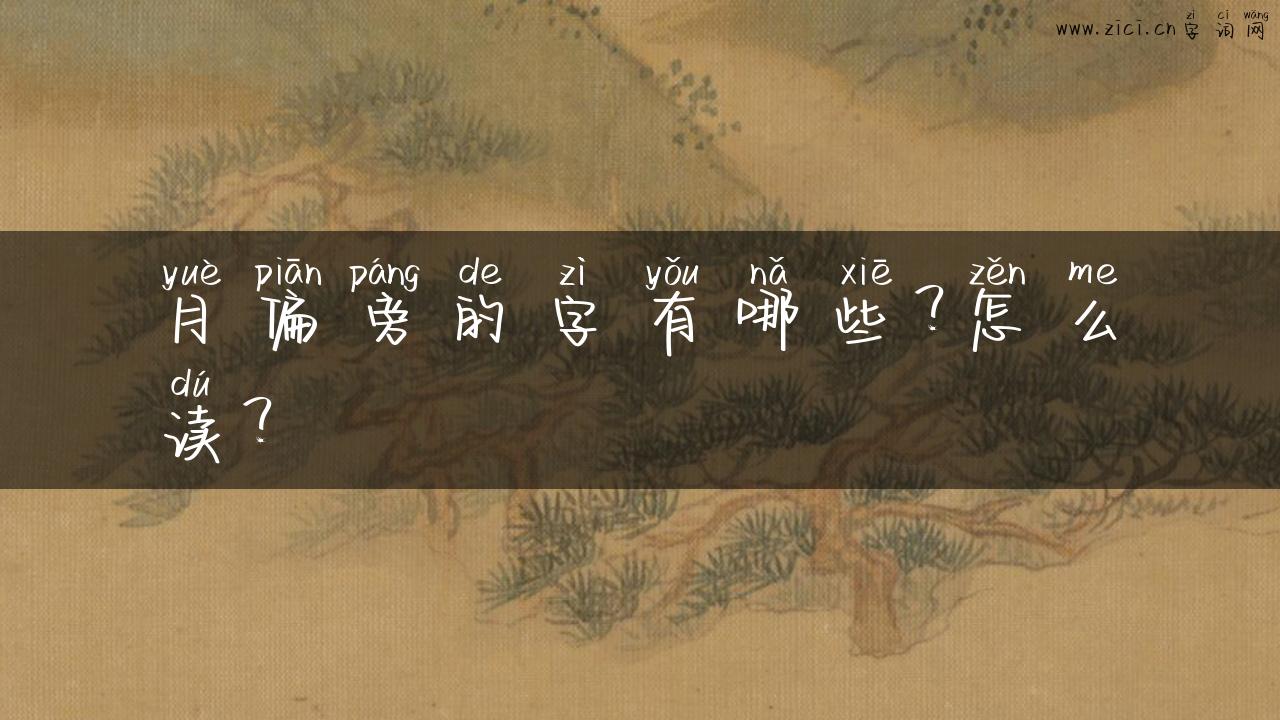 zì cí wǎng
www.zici.cn 字词网
yuè piān páng de zì yǒu nǎ xiē zěn me
月偏旁的字有哪些?怎么
dú
读?